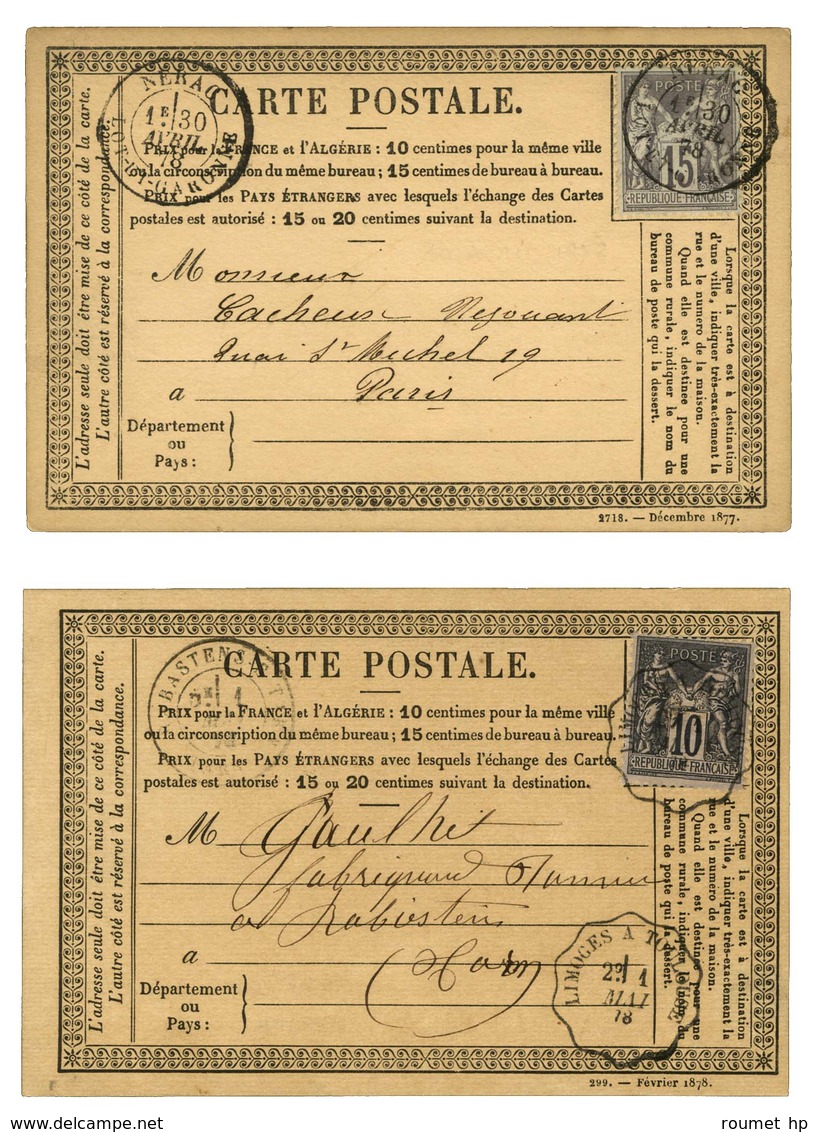 NÉRAC
1E 30
AVRIL
78
LOT-ET-GARONNE
CARTE POSTALE.
NÉRAC
1E 30
AVRIL
78
15
REPUBLIQUE FRANÇAISE
PRIX pour la FRANCE et l'ALGÉRIE : 10 centimes pour la même ville
ou la circonscription du même bureau ; 15 centimes de bureau à bureau.
PRIX pour les PAYS ÉTRANGERS avec lesquels l'échange des Cartes
postales est autorisé : 15 ou 20 centimes suivant la destination.
L'adresse seule doit être mise de ce côté de la carte.
L'autre côté est réservé à la correspondance.
Monsieur
Cacheux Négociant
Quai St Michel 19
a Paris
Département
ou
Pays :
Lorsque la carte est à destination
d'une ville, indiquer très-exactement la
rue et le numéro de la maison.
Quand elle est destinée pour une
commune rurale, indiquer le nom du
bureau de poste qui la dessert.
2718. — Décembre 1877.
BASTENS
1
CARTE POSTALE.
POSTE
10
REPUBLIQUE FRANÇAISE
PRIX pour la FRANCE et l'ALGÉRIE : 10 centimes pour la même ville
ou la circonscription du même bureau ; 15 centimes de bureau à bureau.
PRIX pour les PAYS ÉTRANGERS avec lesquels l'échange des Cartes
postales est autorisé : 15 ou 20 centimes suivant la destination.
L'adresse seule doit être mise de ce côté de la carte.
L'autre côté est réservé à la correspondance.
M Gaulhet
a
(Tarn)
Département
ou
Pays :
LIMOGES A TOULOUSE
2° 1
MAI
78
Lorsque la carte est à destination
d'une ville, indiquer très-exactement la
rue et le numéro de la maison.
Quand elle est destinée pour une
commune rurale, indiquer le nom du
bureau de poste qui la dessert.
299. — Février 1878.
roumet hp